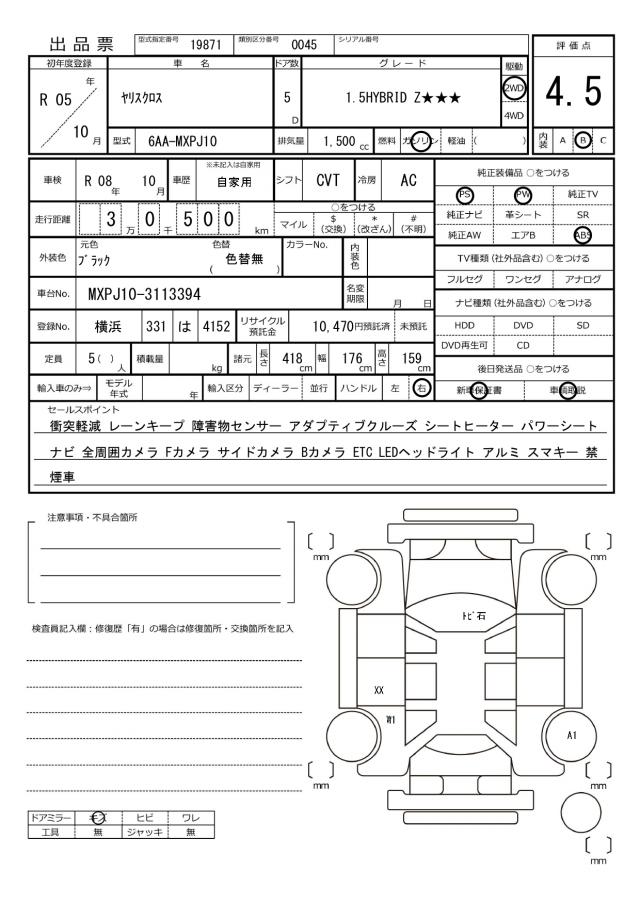 出品票 型式指定番号 19871 類別区分番号 0045 シリアル番号
評価点
4.5
内装 A B C
初年度登録 車名 ドア数 グレード 駆動
R 05 年 10 月
ヤリスクロス 5 D 1.5HYBRID Z★★★ 2WD 4WD
型式 6AA-MXPJ10 排気量 1,500 cc 燃料 ガソリン 軽油 ( )
車検 R 08 年 10 月 車歴 ※未記入は自家用 自家用 シフト CVT 冷房 AC
走行距離 3 万 0 千 5 0 0 km ○をつける
マイル $ (交換) * (改ざん) # (不明)
外装色 元色 ブラック 色替 ( 色替無 ) カラーNo. 内装色
車台No. MXPJ10-3113394 名変期限 月 日
登録No. 横浜 331 は 4152 リサイクル預託金 10,470円預託済 未預託
定員 5 ( ) 人 積載量 kg 諸元 長さ 418 cm 幅 176 cm 高さ 159 cm
輸入車のみ⇒ モデル年式 年 輸入区分 ディーラー 並行 ハンドル 左 右
純正装備品 ○をつける
PS PW 純正TV
純正ナビ 革シート SR
純正AW エアB ABS
TV種類 (社外品含む) ○をつける
フルセグ ワンセグ アナログ
ナビ種類 (社外品含む) ○をつける
HDD DVD SD
DVD再生可 CD
後日発送品 ○をつける
新車保証書 車輌取説
セールスポイント
衝突軽減 レーンキープ 障害物センサー アダプティブクルーズ シートヒーター パワーシート
ナビ 全周囲カメラ Fカメラ サイドカメラ Bカメラ ETC LEDヘッドライト アルミ スマキー 禁
煙車
注意事項・不具合箇所
検査員記入欄：修復歴「有」の場合は修復箇所・交換箇所を記入
〔 〕
mm
〔 〕
mm
トビ石
XX
W1
A1
〔 〕
mm
〔 〕
mm
〔 〕
mm
ドアミラー キズ ヒビ ワレ
工具 無 ジャッキ 無